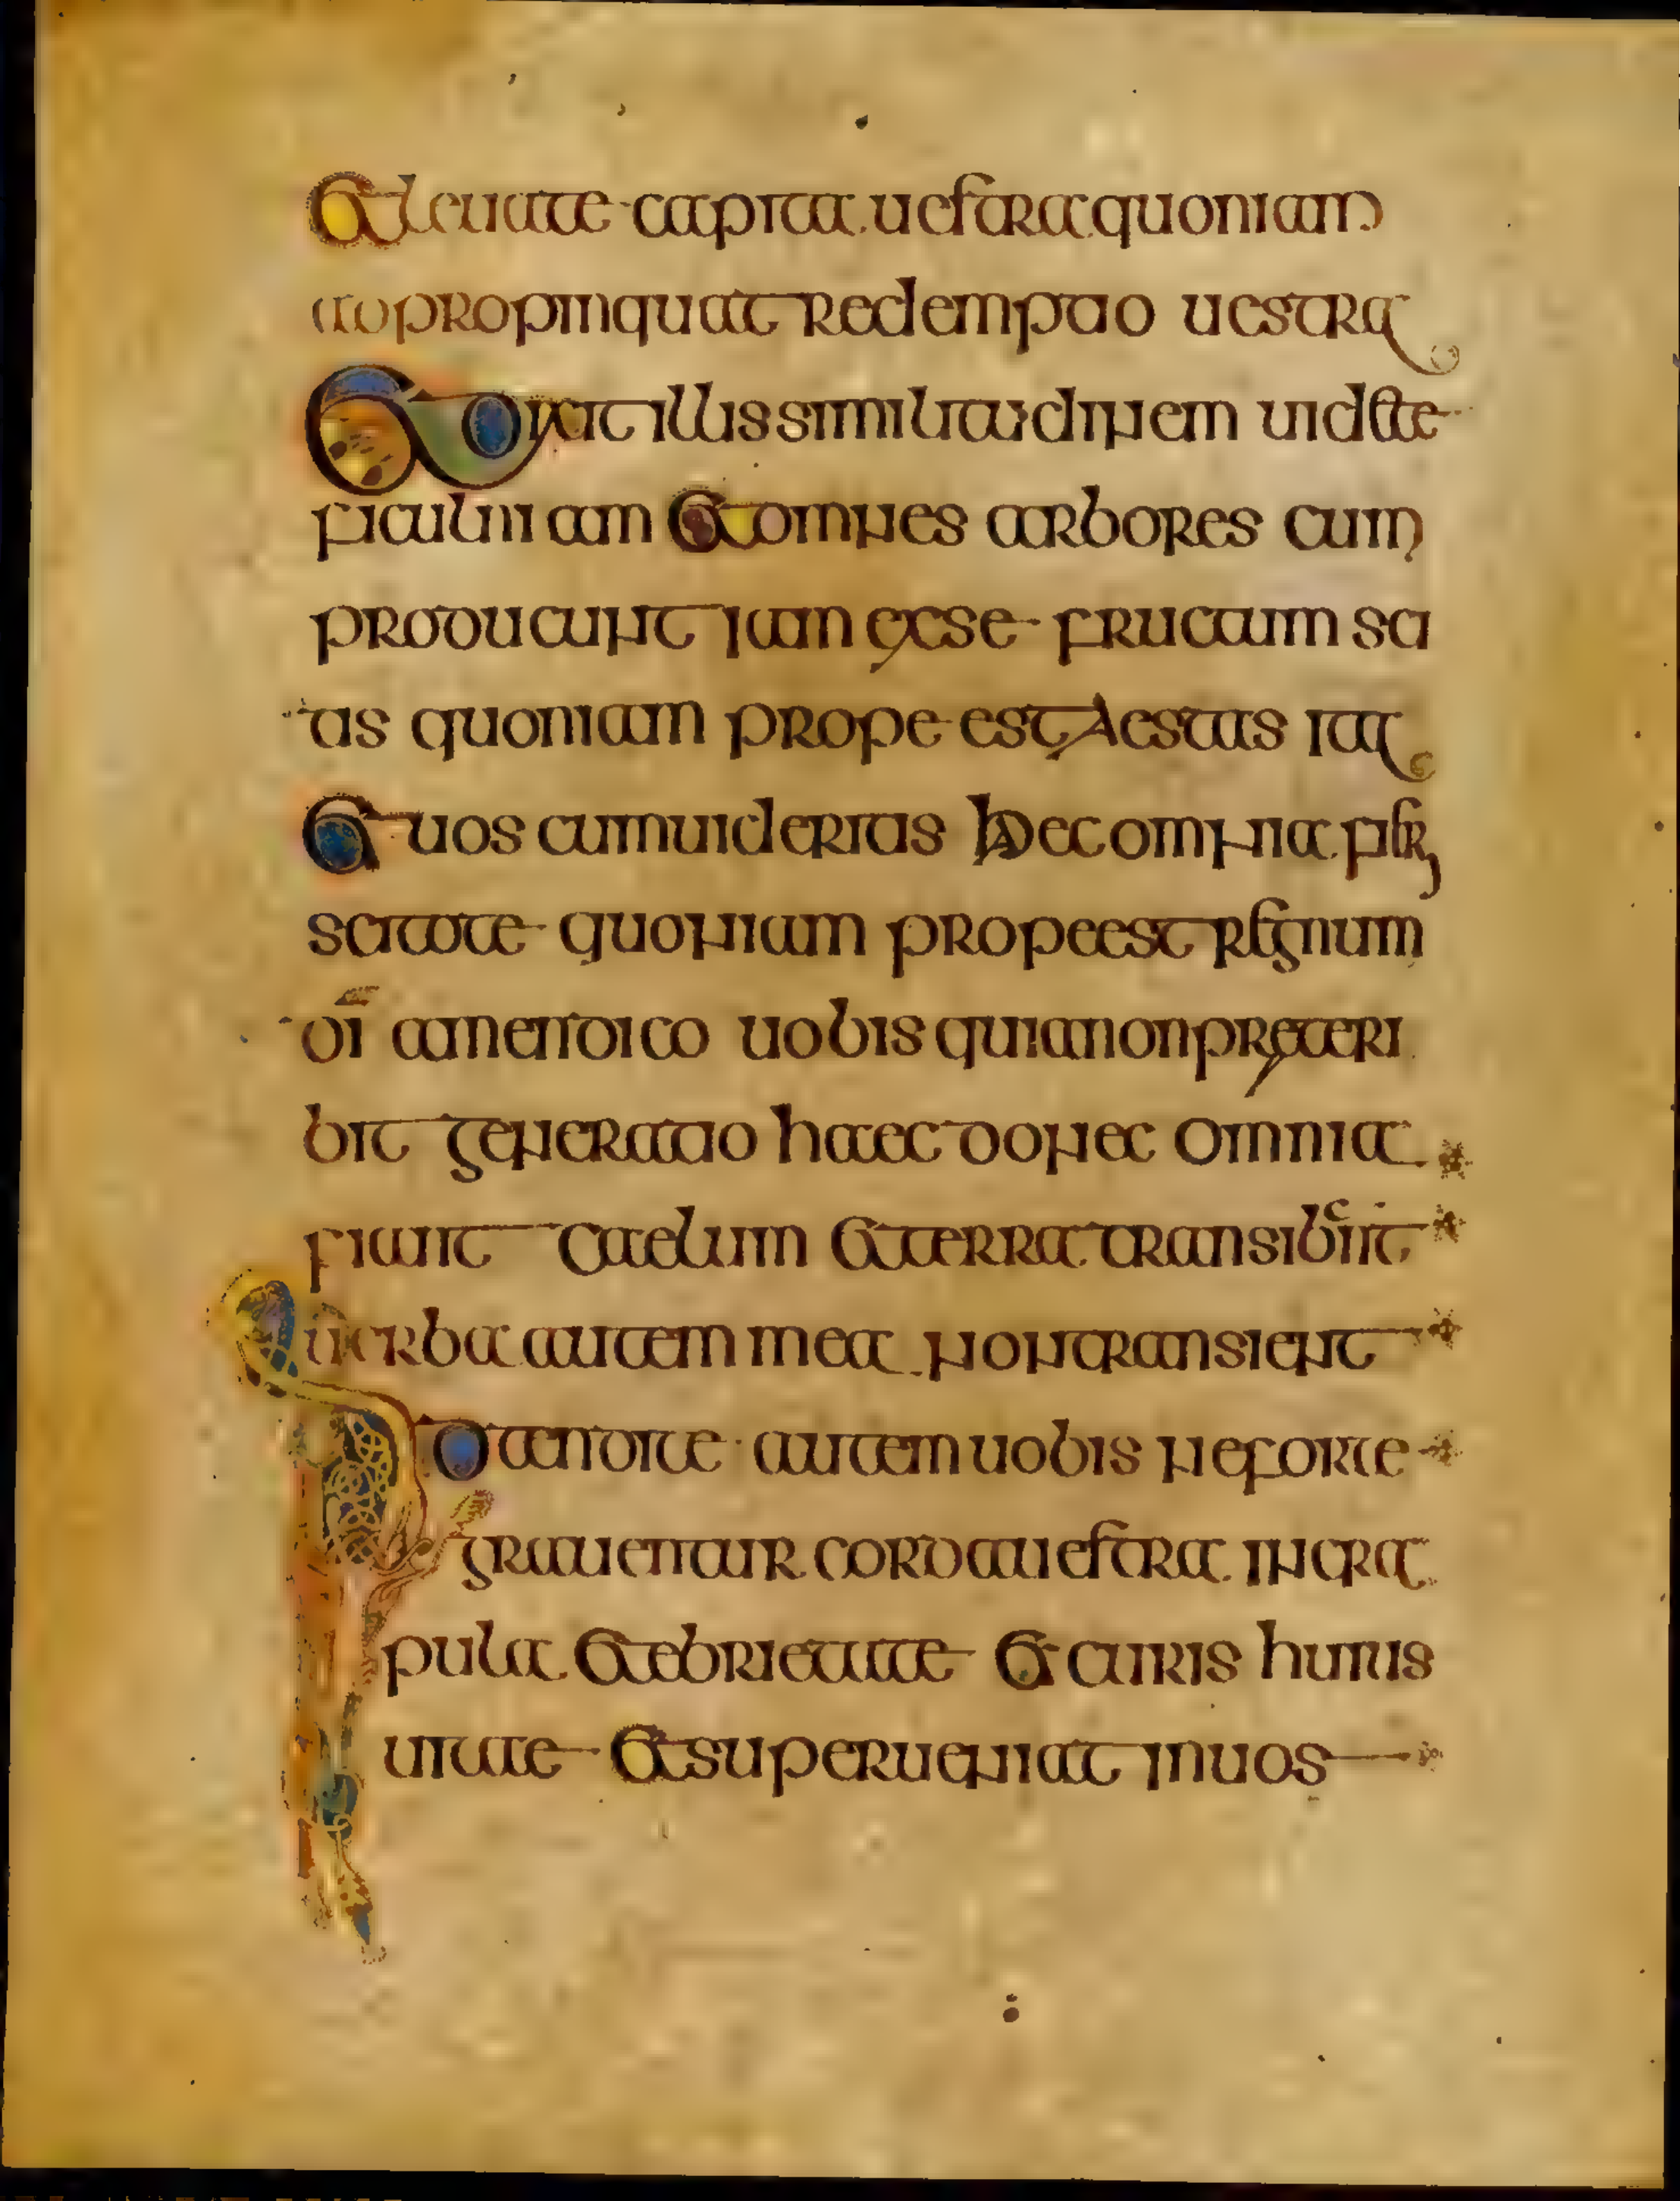 Et leuate capita uestra quoniam
appropinquat redemptio uestra
Et dixit illis similitudinem uidete
ficulniam et omnes arbores cum
producunt iam ex se fructum sci
tis quoniam prope est aestas ita
Et uos cum uideritis haec omnia fieri
scitote quoniam prope est regnum
dī amen dico uobis quia non preteri
bit generatio haec donec omnia
fiunt caelum et terra transibunt
uerba autem mea non transient
Adtendite autem uobis ne forte
grauentur corda uestra in cra
pula et ebrietate et curis huius
uitae et superueniat in uos